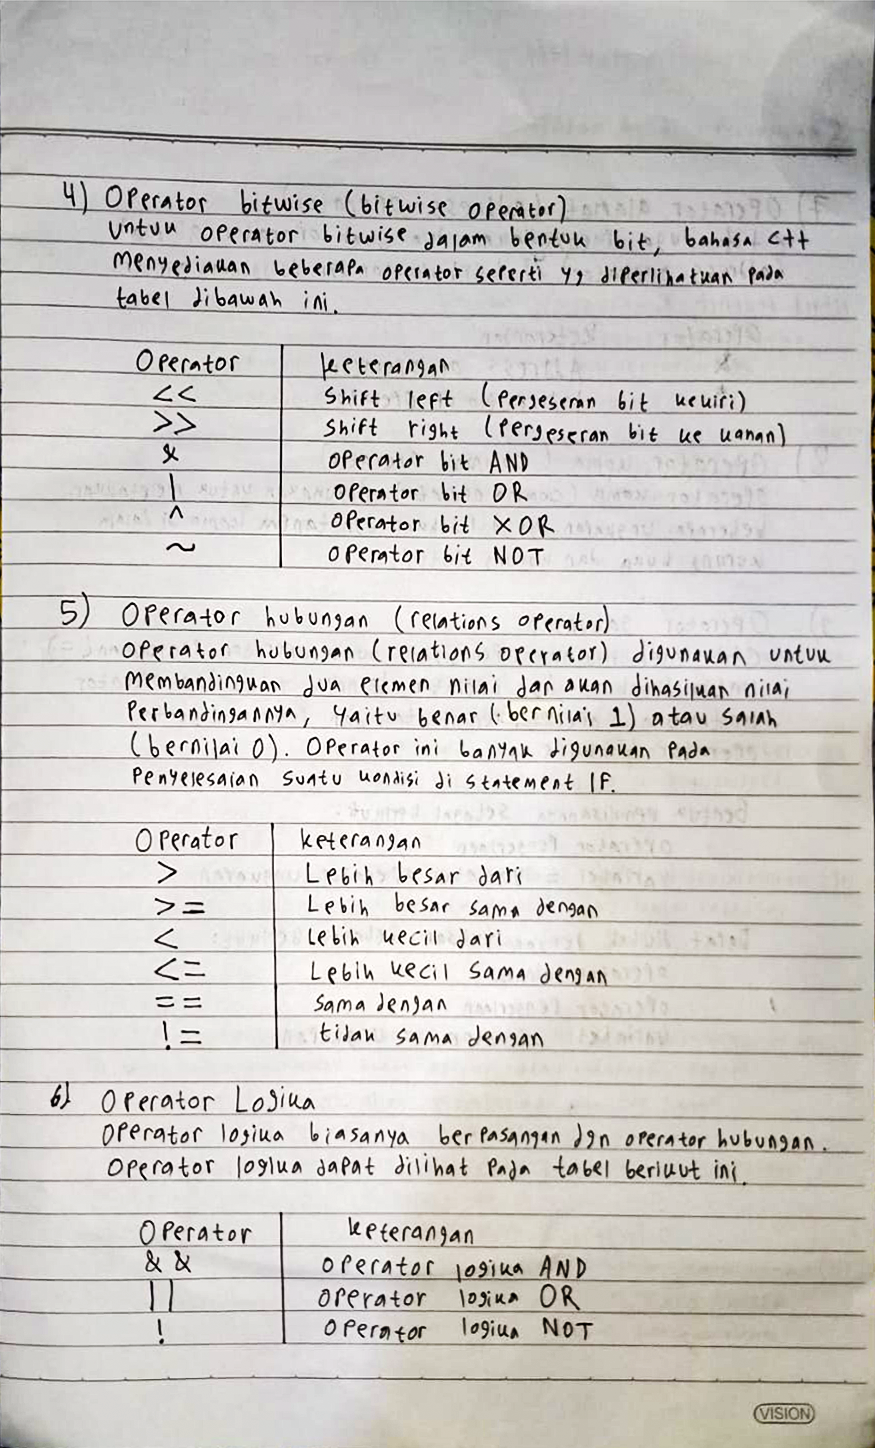 4) Operator bitwise (bitwise operator)
untuk operator bitwise dalam bentuk bit, bahasa C++
menyediakan beberapa operator seperti yg diperlihatkan pada
tabel dibawah ini.
Operator keterangan
<< Shift left (Pergeseran bit kekiri)
>> Shift right (Pergeseran bit ke kanan)
& operator bit AND
| operator bit OR
^ operator bit XOR
~ operator bit NOT
5) Operator hubungan (relations operator)
operator hubungan (relations operator) digunakan untuk
membandingkan dua elemen nilai dan akan dihasilkan nilai
Perbandingannya, yaitu benar (bernilai 1) atau salah
(bernilai 0). Operator ini banyak digunakan pada
Penyelesaian suatu kondisi di statement IF.
Operator keterangan
> Lebih besar dari
>= Lebih besar sama dengan
< Lebih kecil dari
<= Lebih kecil sama dengan
== sama dengan
!= tidak sama dengan
6) Operator Logika
Operator logika biasanya berpasangan dgn operator hubungan.
Operator logika dapat dilihat pada tabel berikut ini.
Operator keterangan
&& operator logika AND
|| operator logika OR
! operator logika NOT
VISION